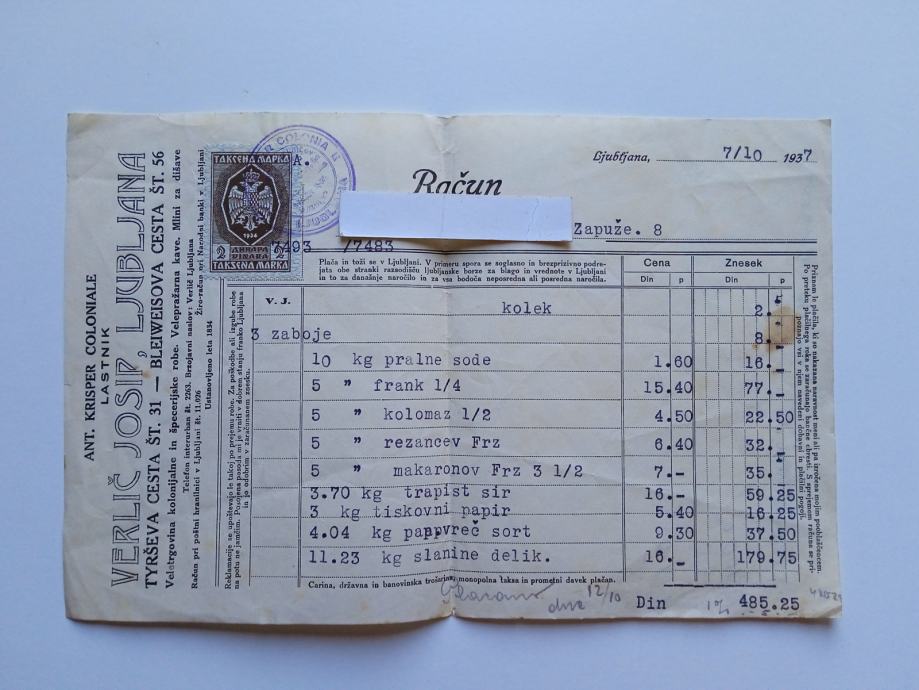 ANT. KRISPER COLONIALE
LASTNIK
VERLIČ JOSIP, LJUBLJANA
TYRŠEVA CESTA ŠT. 31 — BLEIWEISOVA CESTA ŠT. 56
Veletrgovina kolonijalne in špecerijske robe. Velepražarna kave. Mlini za dišave
Telefon interurban št. 2263. Brzojavni naslov: Verlič Ljubljana
Račun pri poštni hranilnici v Ljubljani št. 11.026 Žiro-račun pri Narodni banki v Ljubljani
Ustanovljeno leta 1834
ТАКСЕНА МАРКА
1934
2 ДИНАРА 2
DINARA
TAKSENA MARKA
COLONIA
A.
Ljubljana, 7/10 1937
Račun
Zapuže. 8
7493 /7483
Plača in toži se v Ljubljani. V primeru spora se soglasno in brezprizivno podre-
jata obe stranki razsodišču ljubljanske borze za blago in vrednote v Ljubljani
in to za današnje naročilo in za vsa bodoča neposredna ali posredna naročila.
Cena Znesek
Din p Din p
V. J.
kolek 2.-
3 zaboje 8.-
10 kg pralne sode 1.60 16.-
5 " frank 1/4 15.40 77.-
5 " kolomaz 1/2 4.50 22.50
5 " rezancev Frz 6.40 32.-
5 " makaronov Frz 3 1/2 7.- 35.-
3.70 kg trapist sir 16.- 59.25
3 kg tiskovni papir 5.40 16.25
4.04 kg papvreč sort 9.30 37.50
11.23 kg slanine delik. 16.- 179.75
Carina, državna in banovinska trošarina, monopolna taksa in prometni davek plačan.
Din 1% 485.25
dne 12/10
Reklamacije se upoštevajo le takoj po prejemu robe. Za poškodbe ali izgube robe
na potu ne jamčim. Posojena posoda naj se vrniti v dobrem stanju franko Ljubljana
in jo odobrim v zaračunanem znesku.
Priznam le plačila, ki so nakazana naravnost meni ali pa izročena mojim pooblaščencem.
Po preteku plačilnega roka se zaračunajo bančne obresti. S sprejemom računa se pri-
poznajo vsi v njem navedeni dobavni in plačilni pogoji.